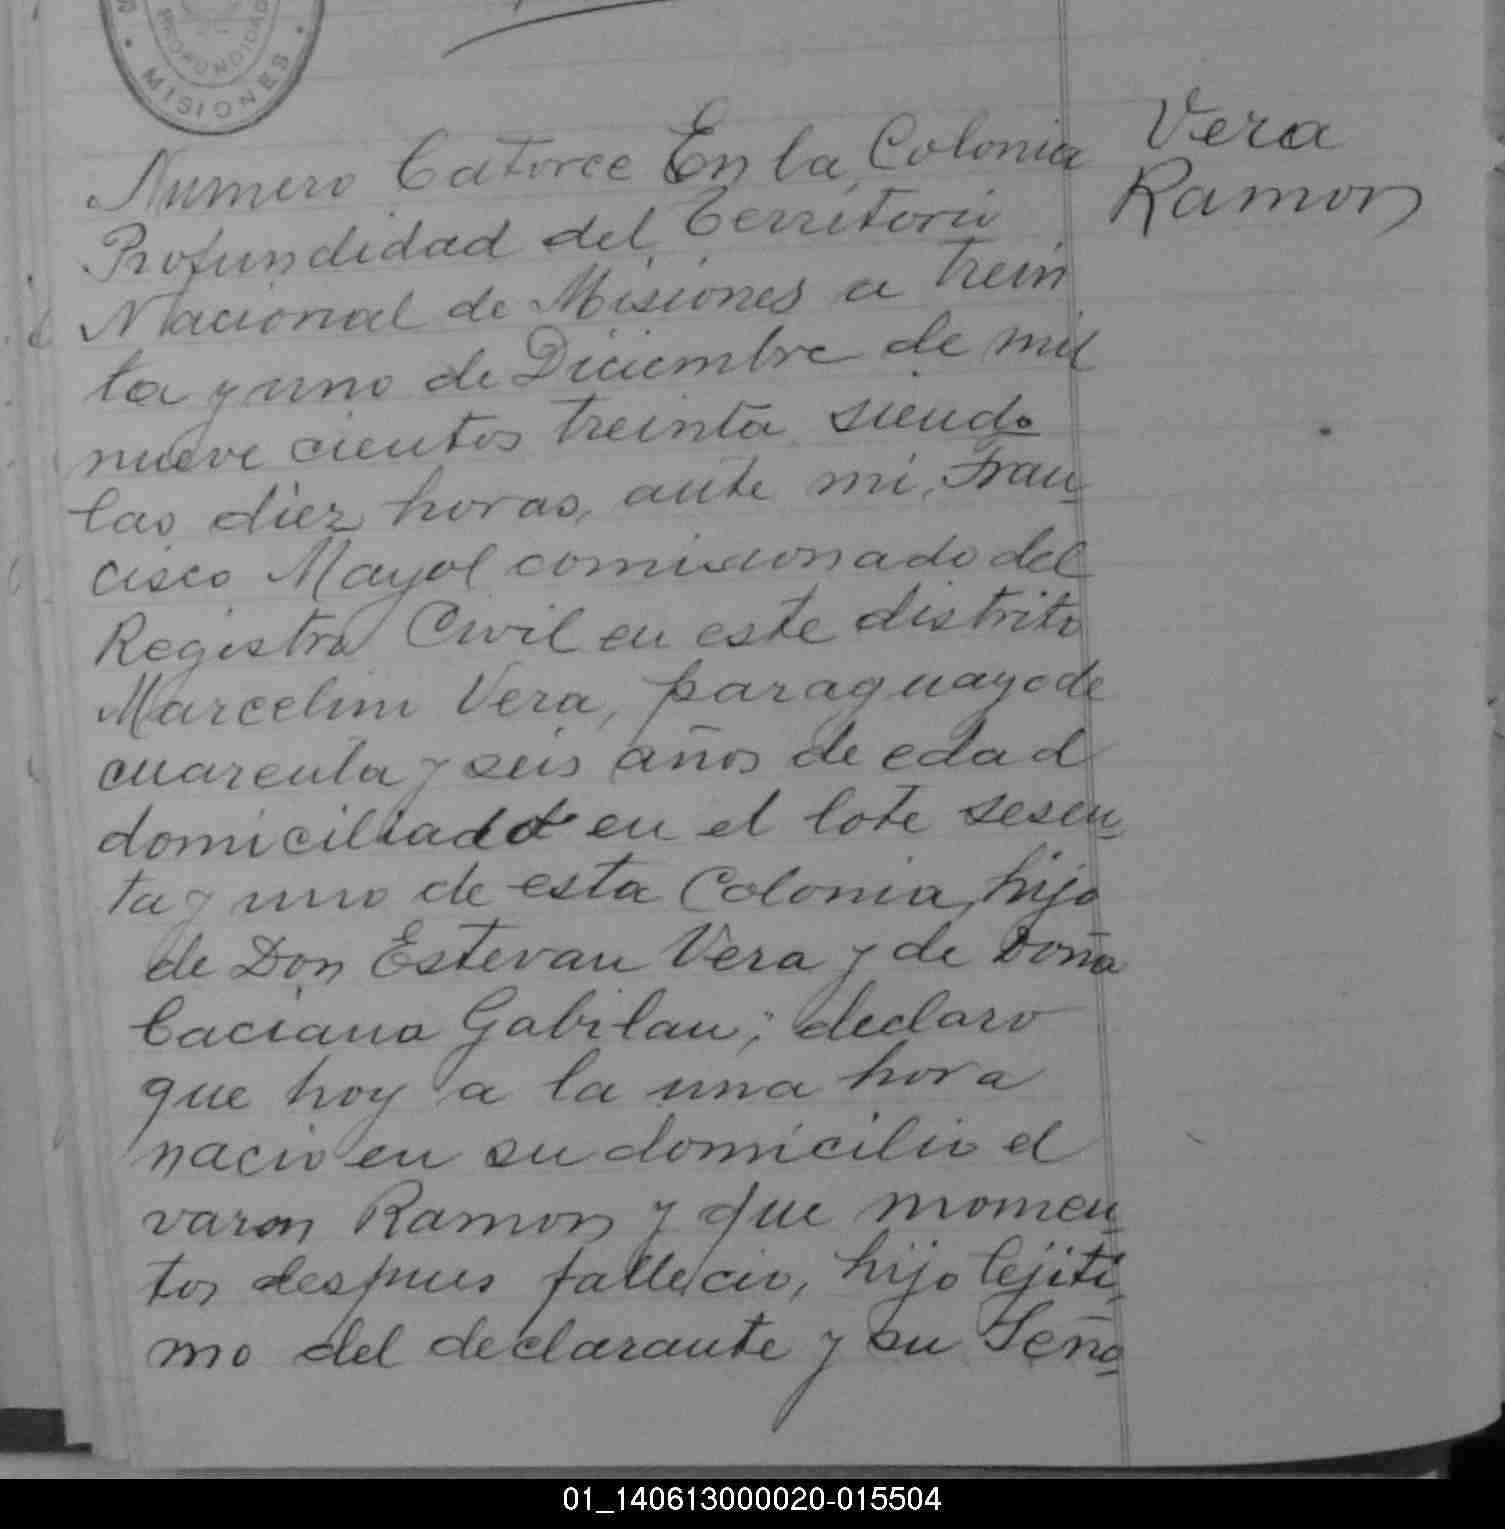 PROFUNDIDAD
MISIONES
Vera
Ramon
Numero Catorce En la Colonia
Profundidad del Territorio
Nacional de Misiones a trein
ta y uno de Diciembre de mil
nueve cientos treinta siendo
las diez horas, ante mi, Fran
cisco Mayol comisionado del
Registro Civil en este distrito
Marcelino Vera, paraguayo de
cuarenta y seis años de edad
domiciliado en el lote sesen
ta y uno de esta Colonia, hijo
de Don Estevan Vera y de Doña
Caciana Gabilan; declaro
que hoy a la una hora
nacio en su domicilio el
varon Ramon y que momen
tos despues fallecio, hijo lejiti
mo del declarante y su Seño
01_140613000020-015504